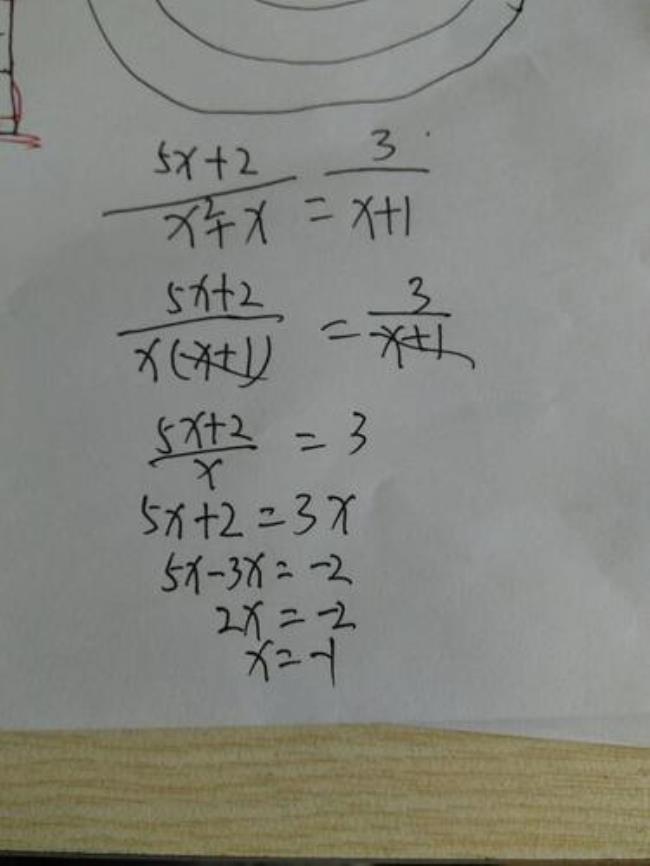 (5x+2)/(x²+x) = 3/(x+1)
(5x+2)/(x(x+1)) = 3/(x+1)
(5x+2)/x = 3
5x+2=3x
5x-3x=-2
2x=-2
x=-1